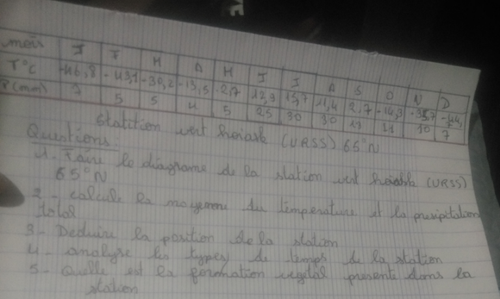 mois J F M A M J J A S O N D
T°C -46,8 -43,1 -30,2 -13,5 2,7 12,9 15,7 11,4 2,7 -14,3 -35,7
P(mm) 7 5 5 4 5 25 30 30 13 11 10 7
Statition vert hoiask (URSS) 65°N
Questions:
1- Faire le diagrame de la station vert hoiask (URSS)
65°N
2- calcule la moyenne du température et la precipitation
total
3- Deduire la position de la station
4- analyse les types de temps de la station
5- Quelle est la formation vegetal presente dans la
station